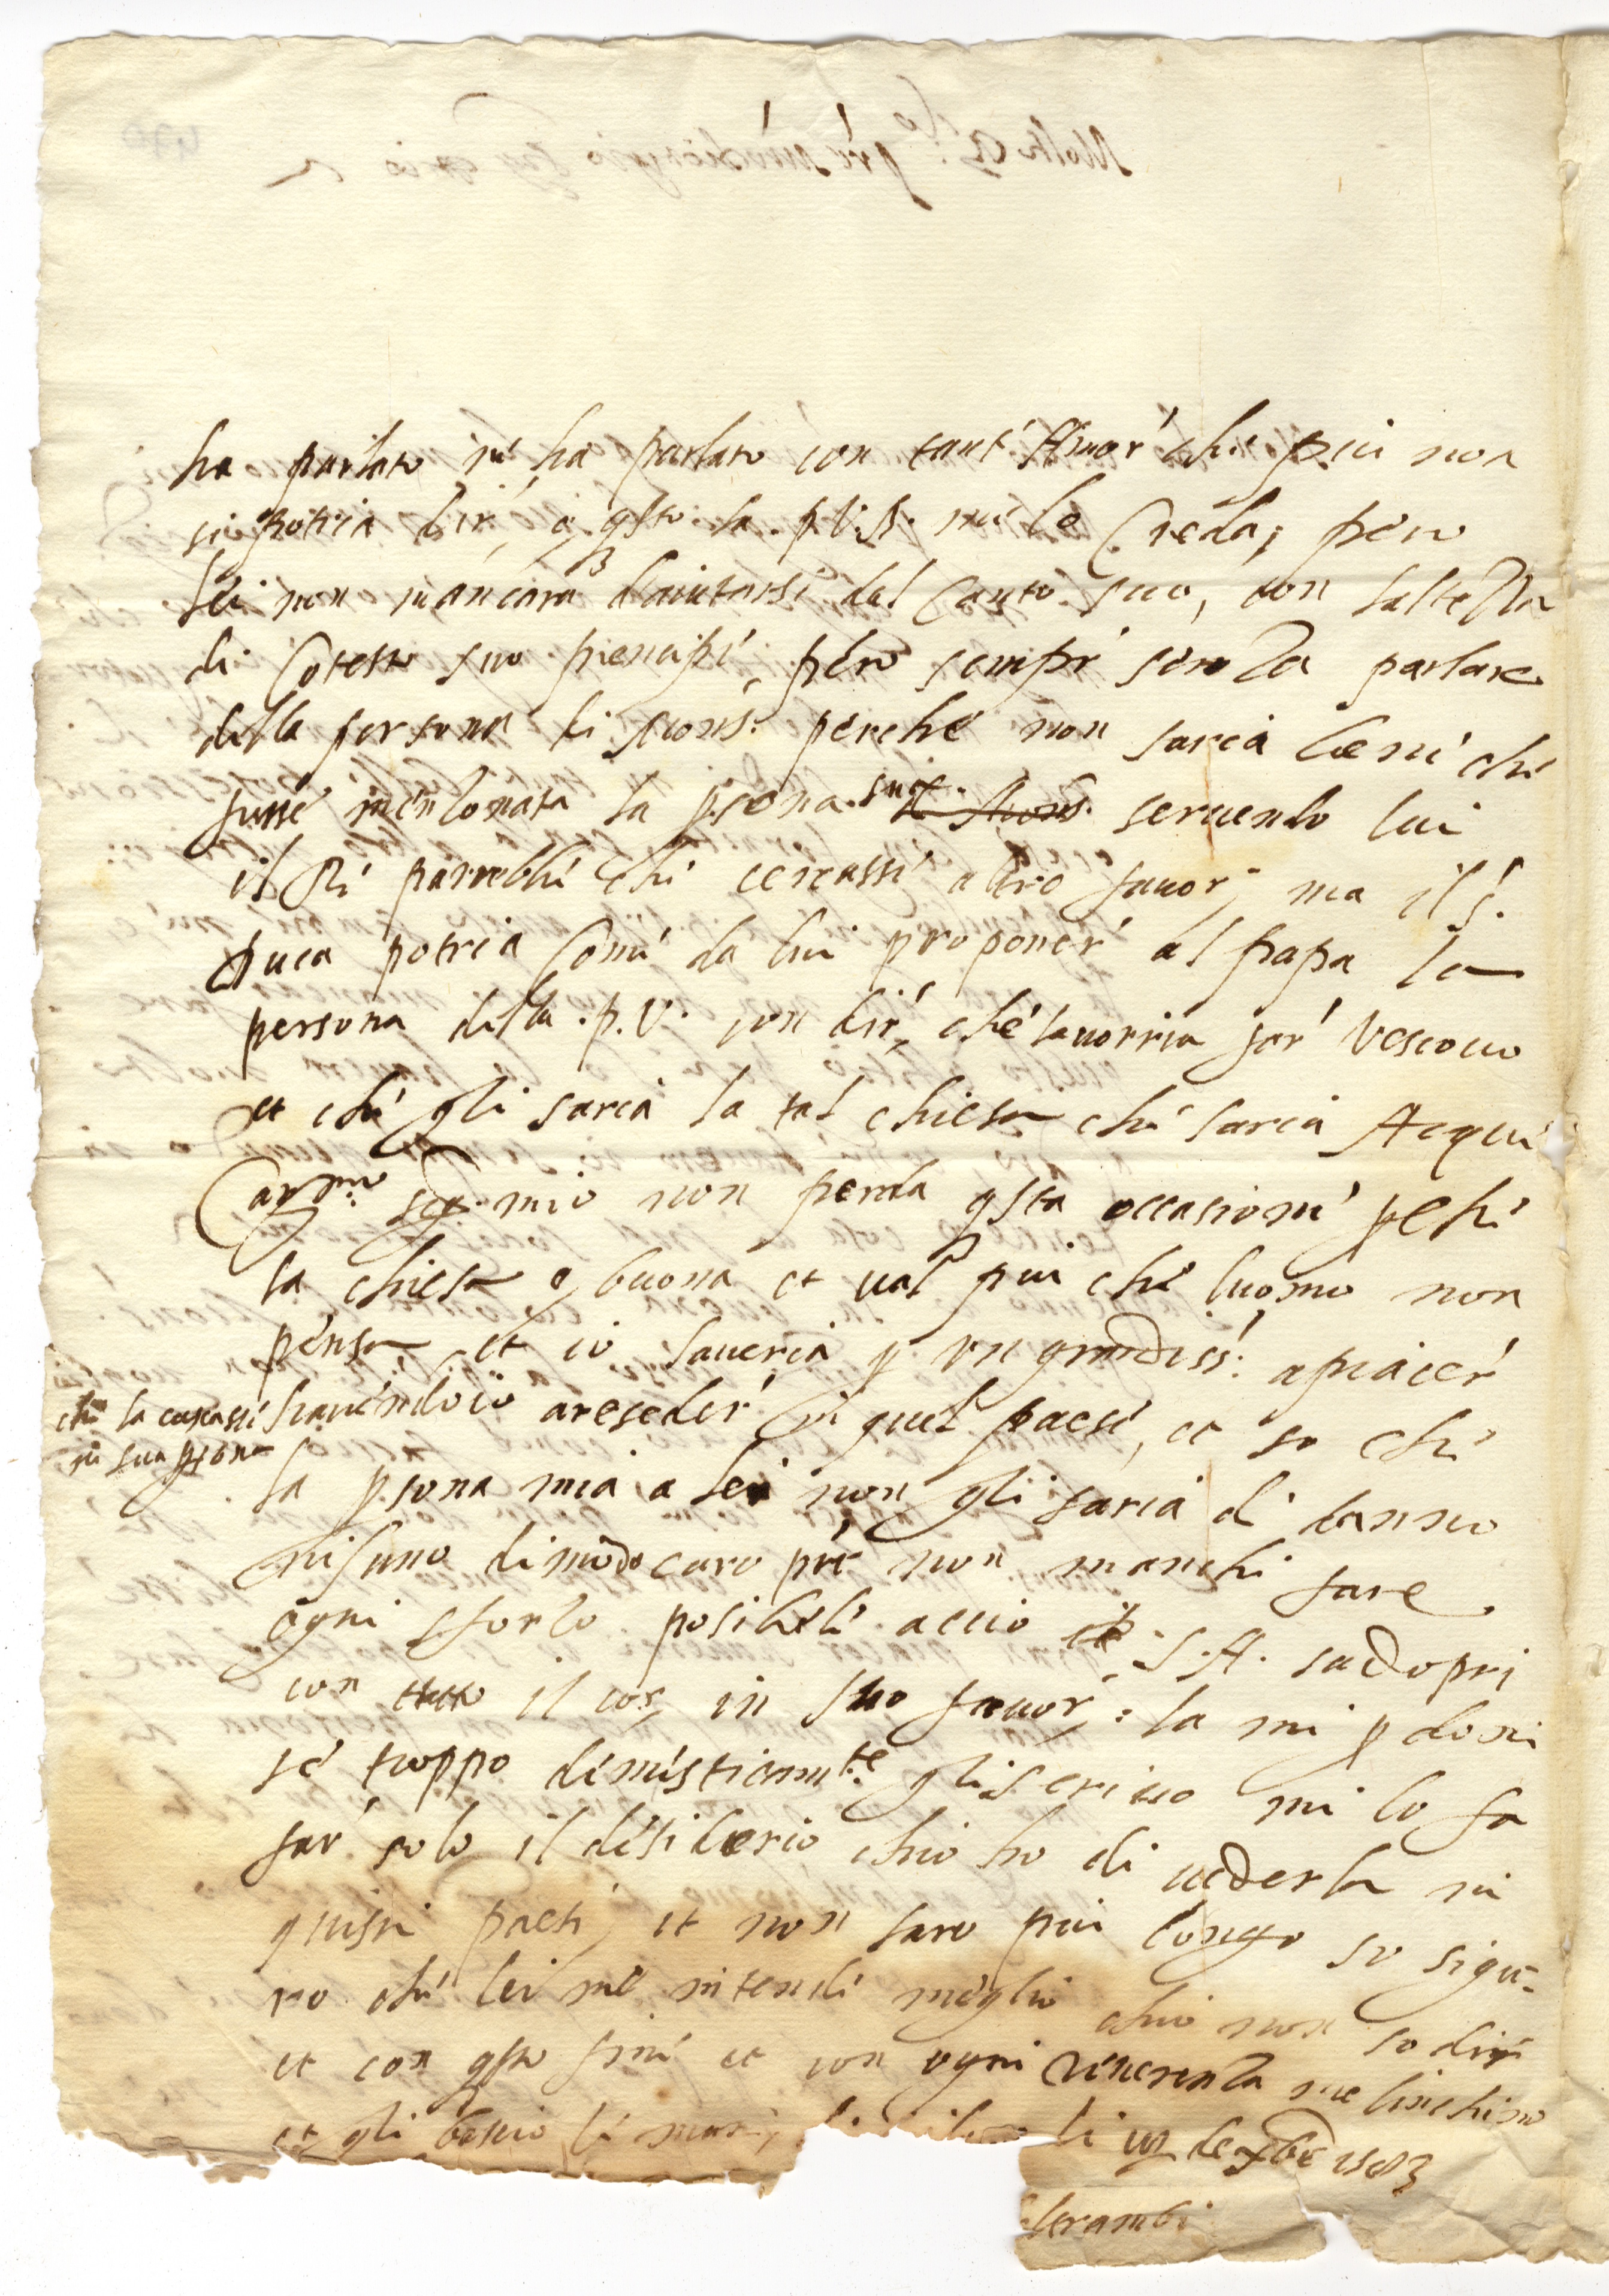 ha parlato me ha parlato con tant' Amor' che piu non
si potria dir, e q̃sto la .p.V.R. me le Creda; pero
lei non mancara d'aiutarsi dal Canto suo, con laltezza
di Cotesto suo prencipe, però sempre senza parlare
della persona di Mons.r perche non saria bene che
fusse mentonata la ꝑsona sua di Mons. seruendo lui
il Re parrebbe che cercasse altro fauor; ma il S.
Duca potria Come da lui proponer' al papa la
persona della .p.V. con dir, che la uorria far' Vescouo
et che gli saria la tal chiesa che saria Acqui
Car.mo Sig.r mio non perda q̃sta occasione ꝑche
la chiesa e, buona et ual piu che luomo non
pensa et io laueria ꝑ un grandiss.o apiacer
che la cascasse in sua ꝑsona
hauendo io areseder' in quel paese, et so che
la ꝑsona mia a lei non gli saria di danno
nisuno di modo caro prẽ non manchi fare
ogni sforzo posibile accio S.A. sadopri
con tutto il cor, in suo fauor; la mi ꝑdoni
se troppo demisticam.te gli scriuo mi lo fa
far' solo il desiderio chio ho di uederla in
questi paesi, et non saro piu longo so sigu-
ro che lei me intende meglio chio non so dir
et con q̃sto fine et con ogni reuerenza me linchino
et gli bascio le mani, li de xbre 1583